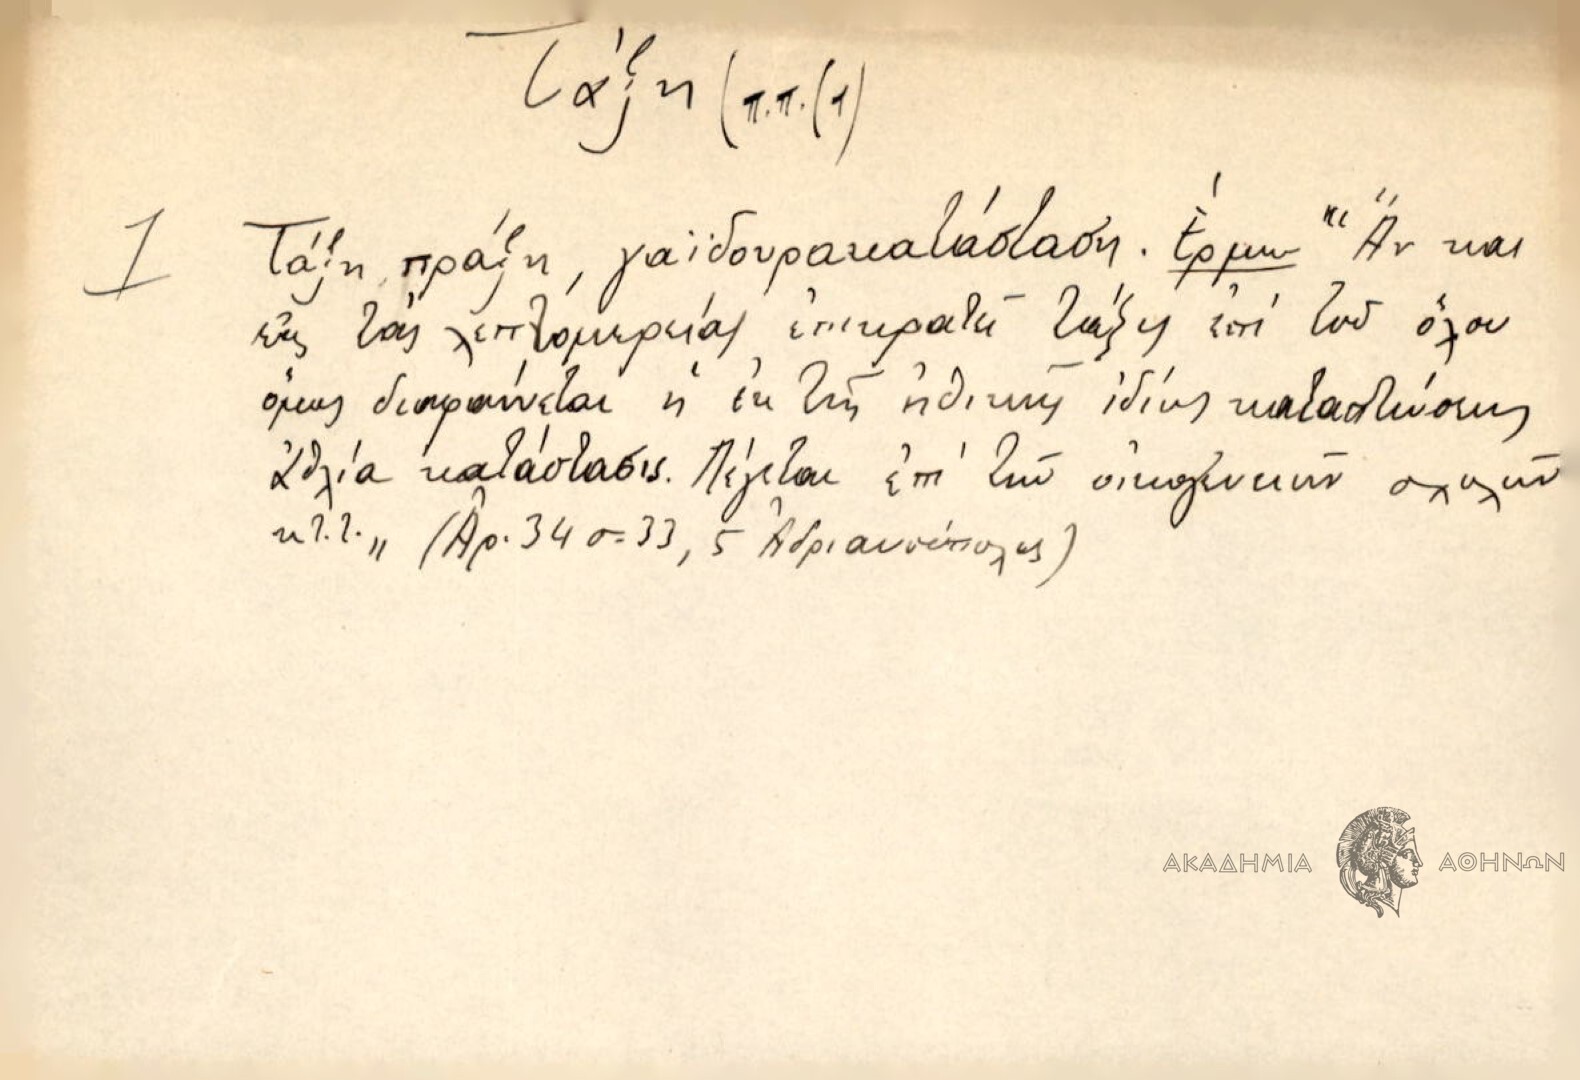 Τάξη (π.π. (1)
1 Τάξη, πράξη, γαϊδουρακατάσταση. Ἑρμην "Ἂν και
εἰς τὰς λεπτομερείας ἐπικρατεῖ τάξις ἐπὶ τοῦ ὅλου
ὅμως διαφαίνεται ἡ ἐκ τῆς ἠθικῆς ἰδίως καταπτώσεως
ἀθλία κατάστασις. Λέγεται ἐπὶ τῶν σχολῶν
κ.τ.τ.„ (Ἀρ. 34 σ. 33, 5 Ἀδριανούπολις)
ΑΚΑΔΗΜΙΑ ΑΘΗΝΩΝ